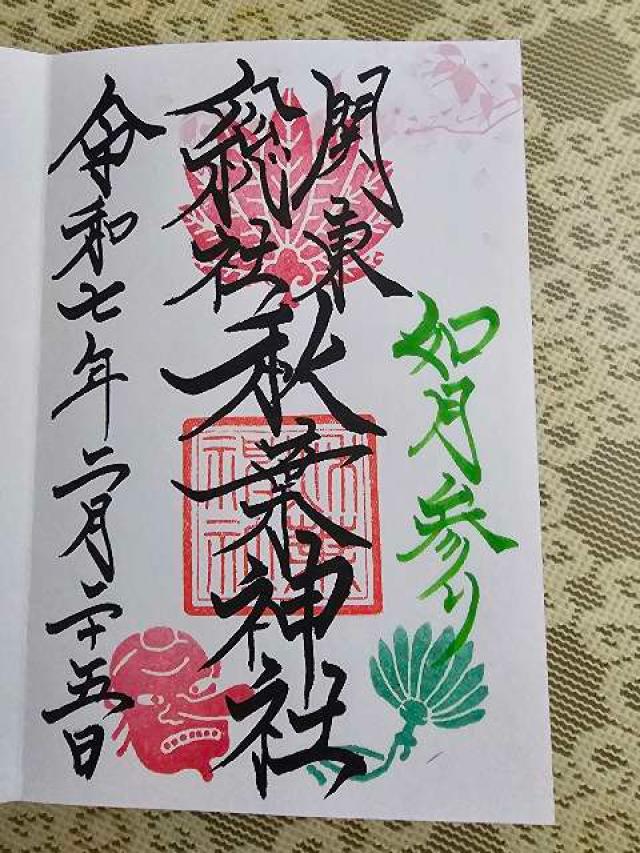 如月参り
関東
総社
秋葉神社
令和七年二月二十五日